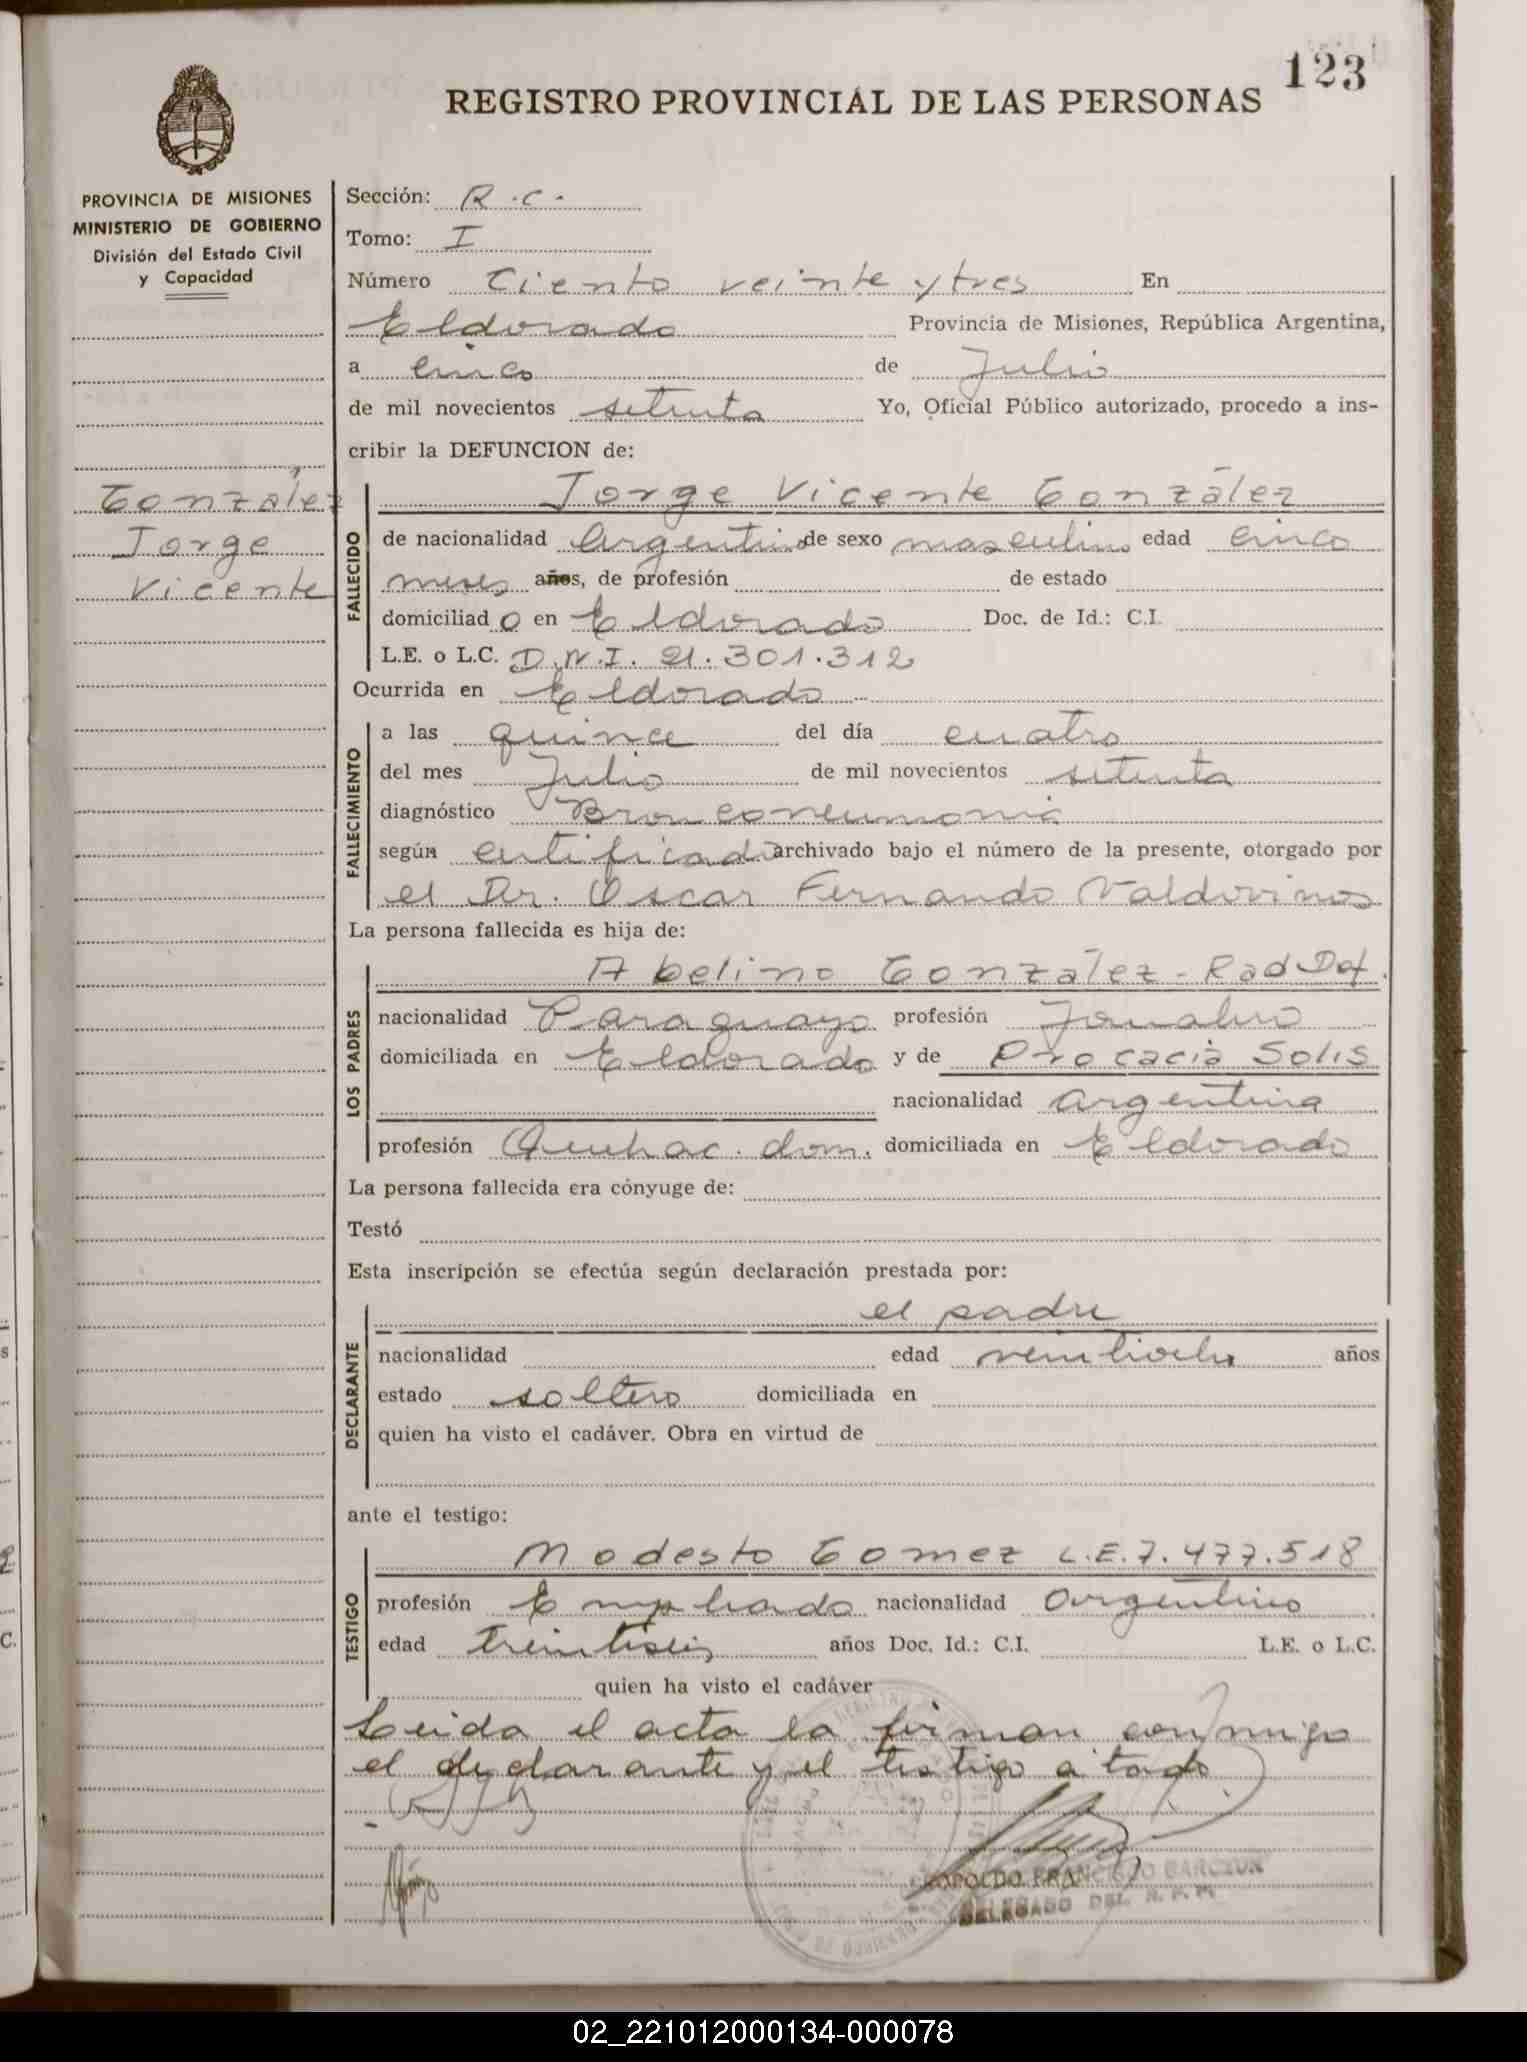 123
REGISTRO PROVINCIAL DE LAS PERSONAS
PROVINCIA DE MISIONES
MINISTERIO DE GOBIERNO
División del Estado Civil
y Capacidad
Sección: R.C.
Tomo: I
Número Ciento veinte y tres En
Eldorado Provincia de Misiones, República Argentina,
a cinco de Julio
de mil novecientos setenta Yo, Oficial Público autorizado, procedo a ins-
cribir la DEFUNCION de:
González
Jorge
Vicente
FALLECIDO
Jorge Vicente González
de nacionalidad Argentino de sexo masculino edad cinco
meses años, de profesión de estado
domiciliado en Eldorado Doc. de Id.: C.I.
L.E. o L.C. D.N.I. 21.301.312
Ocurrida en Eldorado
FALLECIMIENTO
a las quince del día cuatro
del mes Julio de mil novecientos setenta
diagnóstico Bronconeumonia
según certificado archivado bajo el número de la presente, otorgado por
el Dr. Oscar Fernando Valdovinos
La persona fallecida es hija de:
LOS PADRES
Abelino González - Rad Def.
nacionalidad Paraguayo profesión Jornalero
domiciliada en Eldorado y de Procacia Solis
nacionalidad argentina
profesión Quehac. dom. domiciliada en Eldorado
La persona fallecida era cónyuge de:
Testó
Esta inscripción se efectúa según declaración prestada por:
DECLARANTE
el padre
nacionalidad edad veintiocho años
estado soltero domiciliada en
quien ha visto el cadáver. Obra en virtud de
ante el testigo:
TESTIGO
Modesto Gomez L.E. 7.477.518
profesión Empleado nacionalidad argentino
edad treintiseis años Doc. Id.: C.I. L.E. o L.C.
quien ha visto el cadáver
Leida el acta la firman conmigo
el declarante y el testigo a todo
LEOPOLDO FRANCISCO
DELEGADO DEL R. P. P.
02_221012000134-000078